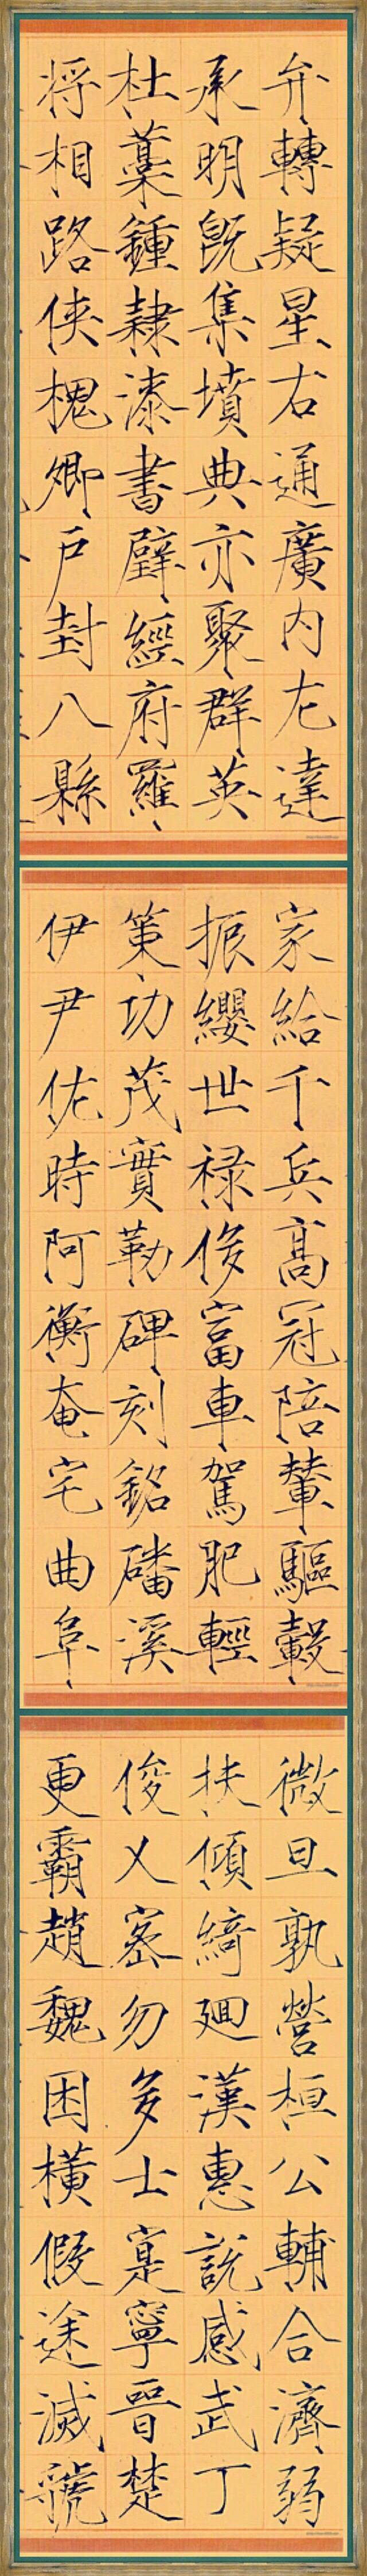 弁轉疑星右通廣内左達
承明既集墳典亦聚群英
杜藁鍾隸漆書壁經府羅
将相路俠槐卿户封八縣
家給千兵高冠陪輦驅轂
振纓世禄侈富車駕肥輕
策功茂實勒碑刻銘磻溪
伊尹佐時阿衡奄宅曲阜
微旦孰營桓公輔合濟弱
扶傾綺迴漢惠說感武丁
俊乂密勿多士寔寧晉楚
更霸趙魏困橫假途滅虢